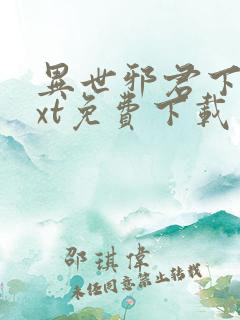 異世邪君下
xt免費下載
邵琪偉
未经同意禁止转载